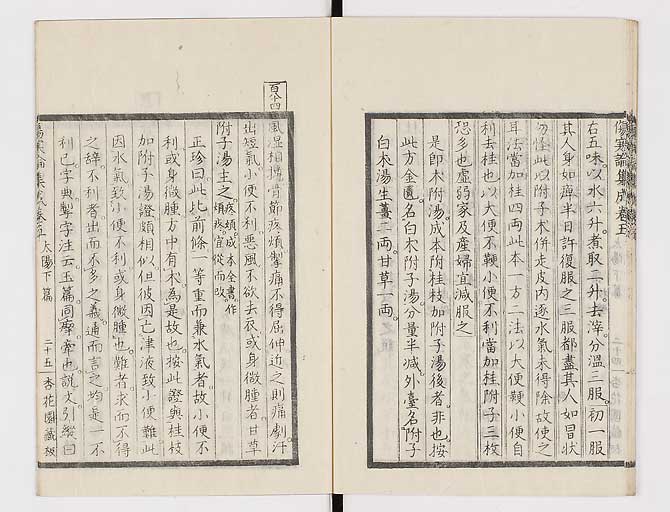 傷寒論集成卷五
右五味以水六升煮取二升去滓分溫三服初一服
其人身如痺半日許復服之三服都盡其人如冒狀
勿怪此以附子朮併走皮內逐水氣未得除故使之
耳法當加桂四兩此本一方二法以大便鞕小便自
利去桂也以大便不鞕小便不利當加桂附子三枚
恐多也虛弱家及產婦宜減服之
是即木附湯成本附桂枝加附子湯後者非也按
此方金匱名白朮附子湯分量半減外臺名附子
白朮湯生薑二兩甘草一兩
百八四
風濕相摶骨節疼煩掣痛不得屈伸近之則痛劇汗
出短氣小便不利惡風不欲去衣或身微腫者甘草
附子湯主之疼煩成本全書作煩疼宜從而改
正珍曰此比前條一等重而兼水氣者故小便不
利或身微腫方中有朮為是故也按此證與桂枝
加附子湯證頗相似但彼因亡津液致小便難此
因水氣致小便不利或身微腫也難者求而不得
之辭不利者出而不多之義通而言之均是一不
利已字典掣字注云玉篇同瘛牽也說文引縱曰
傷寒論集成卷五 太陽下篇 二十五 杏花園藏板